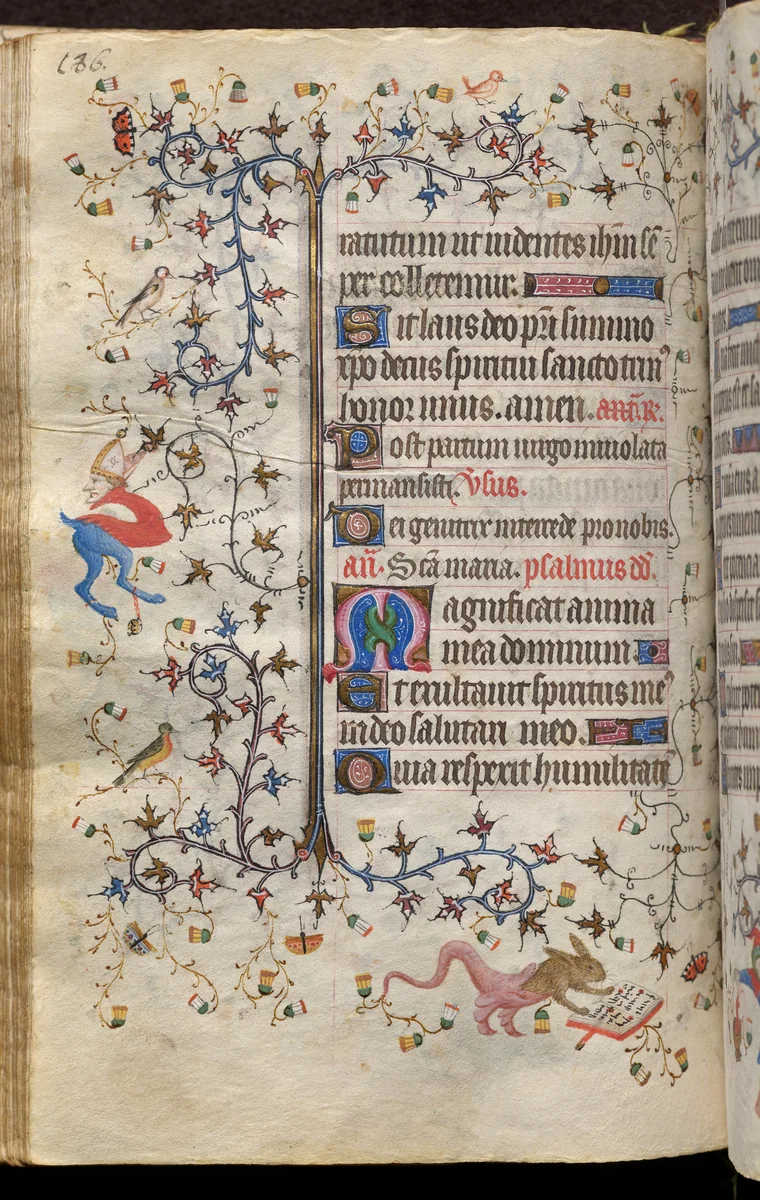 186.
ratutum ut uidentes ihm se
per colletemur.
Sit laus deo pri summo
xpo decus spiritui sancto trin'
honor unus. amen. ant. R.
Post partum uirgo inuiolata
permansisti. Vsus.
Dei genitrix intercede pro nobis.
an. Sca maria. psalmus dd.
Magnificat anima
mea dominum.
Et exultauit spiritus me'
in deo salutari meo.
Quia respexit humilitate